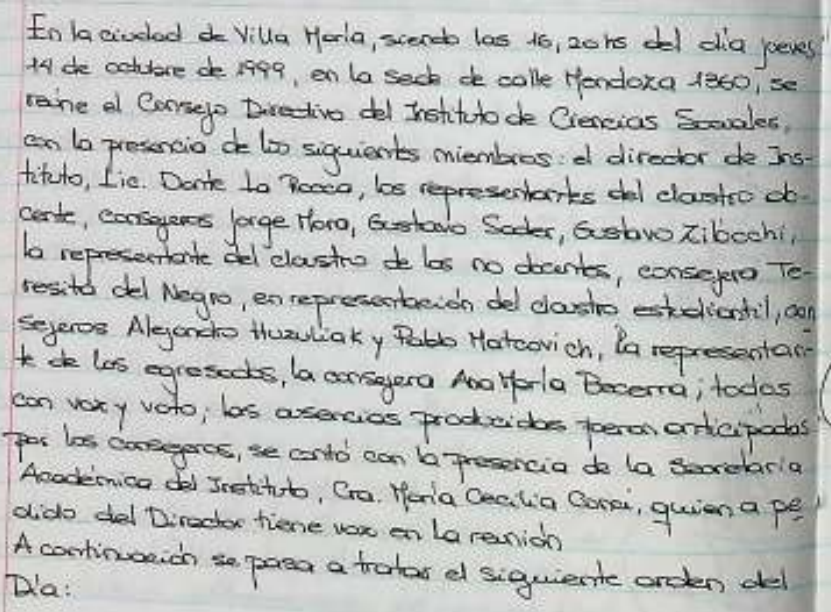 En la ciudad de Villa María, siendo las 16,20hs del día jueves
14 de octubre de 1999, en la sede de calle Mendoza 1360, se
reúne el Consejo Directivo del Instituto de Ciencias Sociales,
con la presencia de los siguientes miembros: el director de Ins-
tituto, Lic. Dante La Rocca, los representantes del claustro do-
cente, consejeros Jorge Mora, Gustavo Sader, Gustavo Zilocchi,
la representante del claustro de los no docentes, consejera Te-
resita del Negro, en representación del claustro estudiantil, con
sejeros Alejandro Huzuliak y Pablo Matcovich, la representan-
te de los egresados, la consejera Ana María Becerra; todos
con voz y voto; las ausencias producidas fueron anticipadas
por los consejeros, se contó con la presencia de la Secretaria
Académica del Instituto, Cra. María Cecilia Conci, quien a pe
dido del Director tiene voz en la reunión
A continuación se pasa a tratar el siguiente orden del
Día: